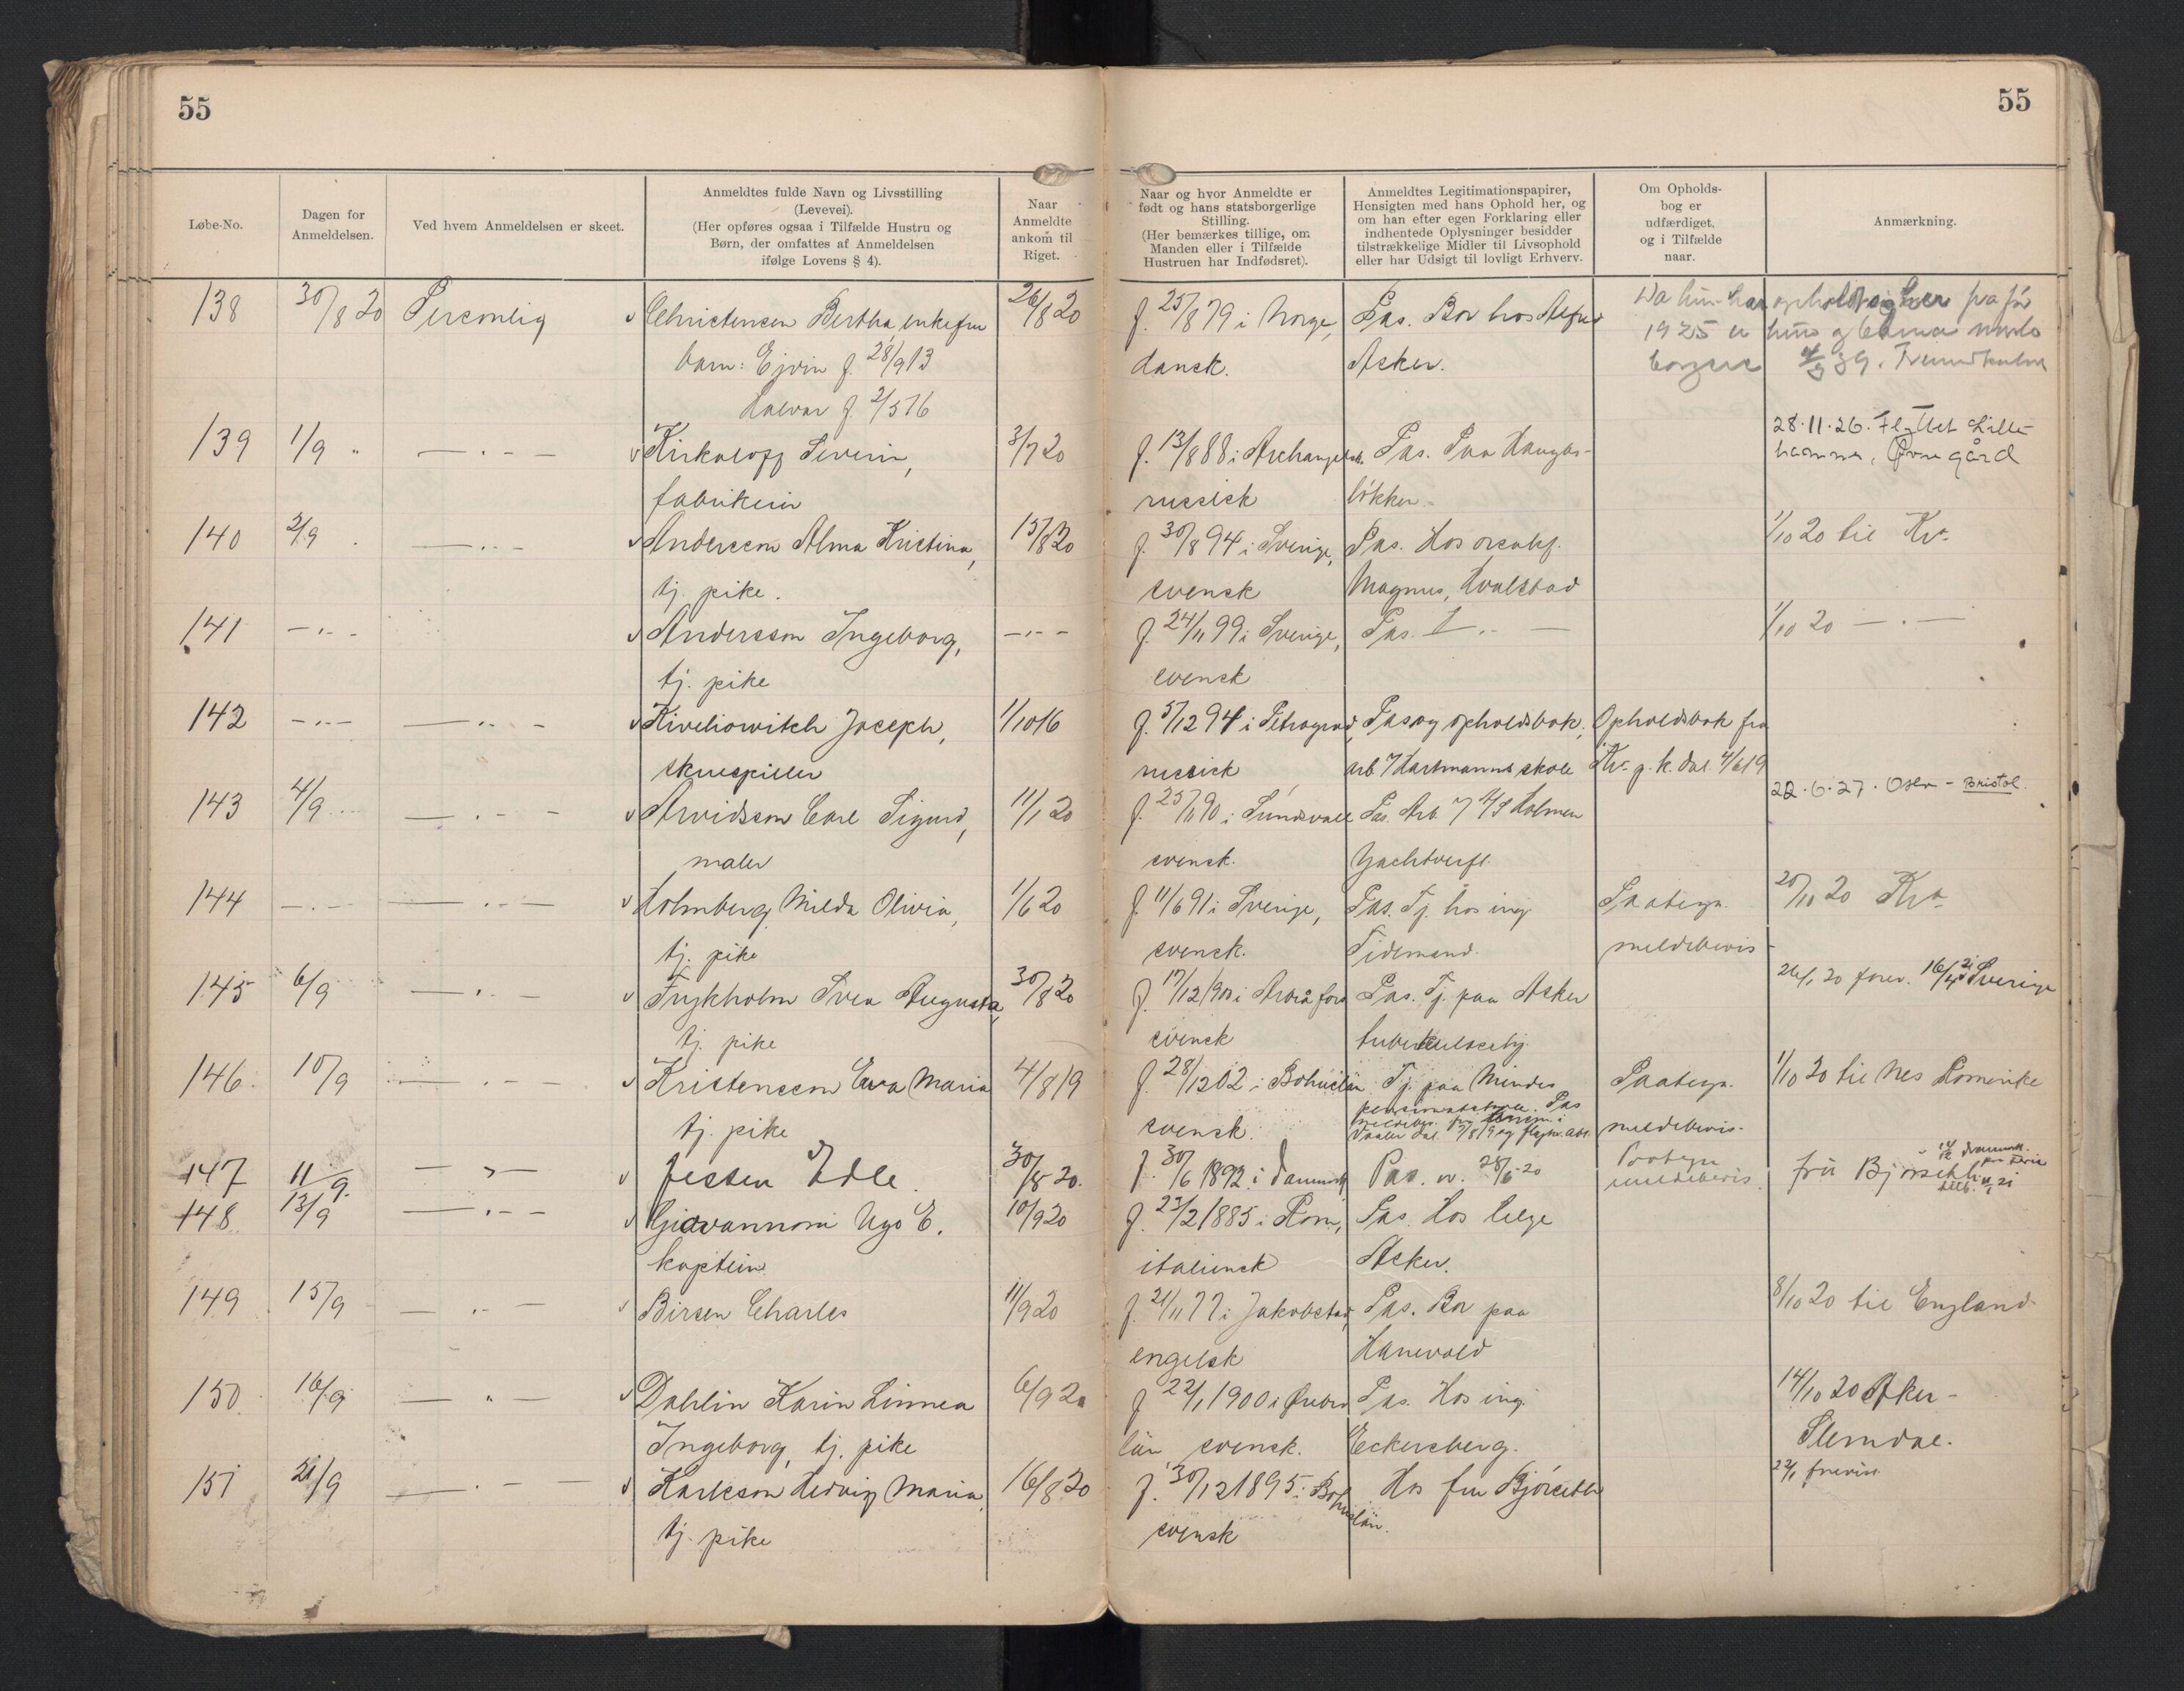 55
55
Løbe-No.
Dagen for
Anmeldelsen.
Ved hvem Anmeldelsen er skeet.
Anmeldtes fulde Navn og Livsstilling
(Levevei).
(Her opføres ogsaa i Tilfælde Hustru og
Børn, der omfattes af Anmeldelsen
ifølge Lovens § 4).
Naar
Anmeldte
ankom til
Riget.
Naar og hvor Anmeldte er
født og hans statsborgerlige
Stilling.
(Her bemærkes tillige, om
Manden eller i Tilfælde
Hustruen har Indfødsret).
Anmeldtes Legitimationspapirer,
Hensigten med hans Ophold her, og
om han efter egen Forklaring eller
indhentede Oplysninger besidder
tilstrækkelige Midler til Livsophold
eller har Udsigt til lovligt Erhverv.
Om Opholds-
bog er
udfærdiget,
og i Tilfælde
naar.
Anmærkning.
138 30/8 20 Personlig Christensen Bertha enkefru 26/8 20 f. 25/8 79 i Norge, Pas. Bor hos Da hun har opholdt sig her fra før
barn: Ejvin f. 28/9 13 dansk. Asker. 1925 er hun og barna norske
Halvar f. 2/5 16 borgere 39.
139 1/9 " — " — Kirkaloff Severin, 3/7 20 f. 13/8 88 i Archangelsk. Pas. Paa Haugbo- 28.11.26. Flyttet Lille-
fabrikeier russisk løkken. hammer, gård
140 2/9 — " — Andersson Alma Kristina, 15/8 20 f. 30/8 94 i Sverige, Pas. Hos 1/10 20 til Kr.a
tj. pike. svensk Magnus, Hvalstad
141 — " — Andersson Ingeborg, — " — f. 24/11 99 i Sverige, Pas. — " — 1/10 20 — " —
tj. pike svensk
142 — " — — " — Kiveliowitch Joseph, 1/10 16 f. 5/12 94 i Petrograd, Pas og opholdsbok, Opholdsbok fra
skuespiller russisk arb. Hartmanns skole Kr.a p.k. dat. 4/6 19
143 4/9 — " — Arvidsson Carl Sigurd, 11/1 20 f. 25/1 90 i Sundsvall Pas. Arb. A/S Holmen 22.6.27. Oslo - Bristol.
maler svensk. Yachtverft.
144 — " — — " — Holmberg Milda Olivia, 1/6 20 f. 11/6 91 i Sverige, Pas. Tj. hos ing. Paategn. 20/10 20 Kr.a
tj. pike svensk. Tidemand. meldebevis
145 6/9 — " — Frykholm Svea Augusta, 30/8 20 f. 17/12 1900 i fors Pas. Tj. paa Asker 20 Sverige
tj. pike svensk
146 10/9 — " — Kristensson Eva Maria 4/8 19 f. 28/12 02 i Bohuslän Tj. paa Mindes Paategn. 1/10 20 til Nes Romerike
tj. pike svensk. Pas meldebevis.
147 11/9. — " — Jessen Edle. 30/8 20. f. 30/6 1892 i Danmark Pas. 28/6-20 Paategn meldebevis. fru Bjørseth
148 13/9 — " — Giovannoni Ugo E. 10/9 20 f. 23/2 1885 i Rom, Pas. Hos
kaptein italiensk Asker.
149 15/9 — " — Birsen Charles 11/9 20 f. 21/11 77 i Jakobstad, Pas. Bor paa 8/10 20 til England
engelsk Hanevold
150 16/9 — " — Dahlin Karin Linnea 6/9 20 f. 22/1 1900 i Örebro Pas. Hos ing. 14/10 20 Aker-
Ingeborg, tj. pike län svensk. Eckersberg. Slemdal.
151 21/9 — " — Karlsson Hedvig Maria, 16/8 20 f. 30/12 1895 i Bohuslän. Hos fru Bjørseth
tj. pike svensk